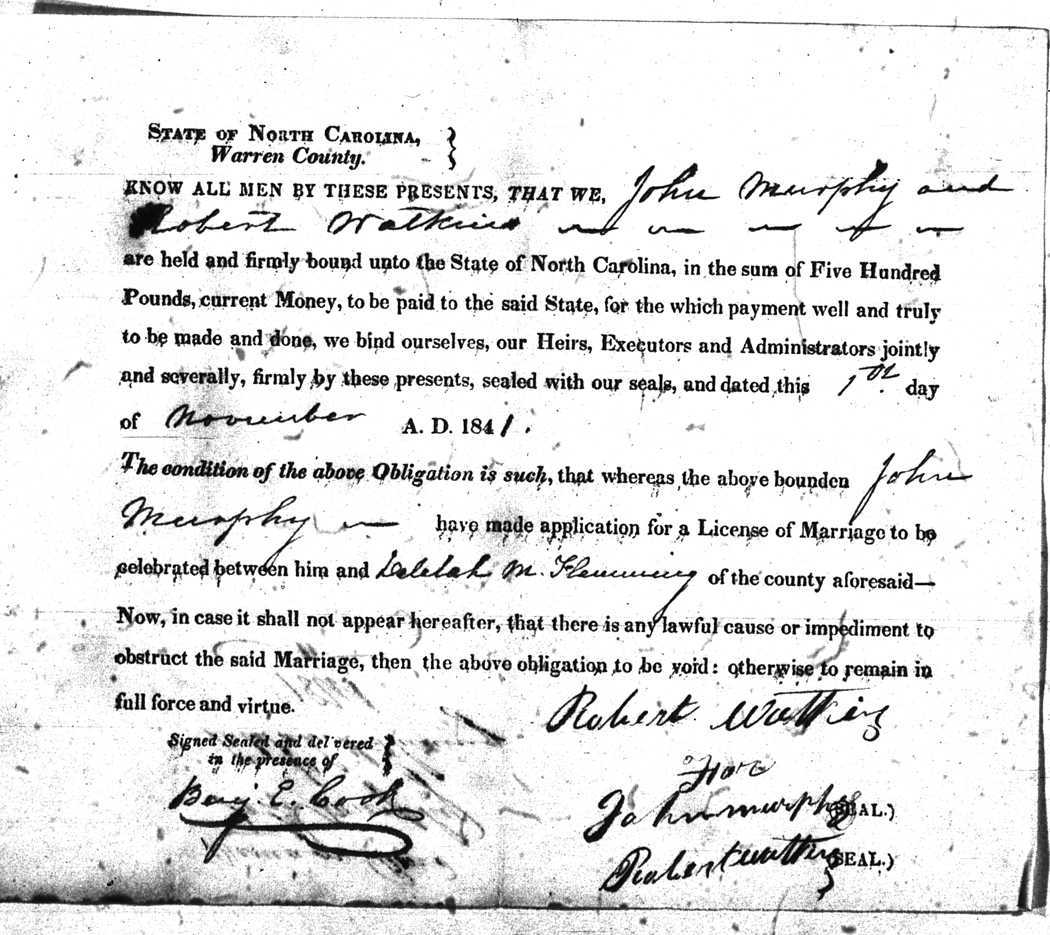 STATE OF NORTH CAROLINA, }
Warren County. }
KNOW ALL MEN BY THESE PRESENTS, THAT WE, John Murphy and
Robert Watkins
are held and firmly bound unto the State of North Carolina, in the sum of Five Hundred
Pounds, current Money, to be paid to the said State, for the which payment well and truly
to be made and done, we bind ourselves, our Heirs, Executors and Administrators jointly
and severally, firmly by these presents, sealed with our seals, and dated this 1st day
of November A. D. 1841.
The condition of the above Obligation is such, that whereas the above bounden John
Murphy have made application for a License of Marriage to be
celebrated between him and Delilah M. Flemming of the county aforesaid—
Now, in case it shall not appear hereafter, that there is any lawful cause or impediment to
obstruct the said Marriage, then the above obligation to be void: otherwise to remain in
full force and virtue.
Robert Watkins
Signed Sealed and delivered }
in the presence of
For
Benj. E. Cook
John murphy (SEAL.)
Robert watkins (SEAL.)